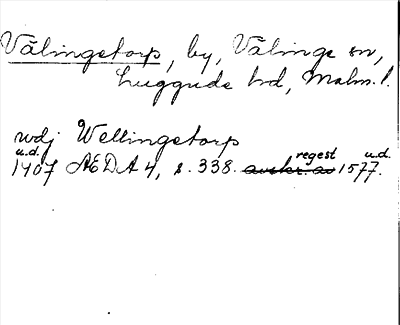 Välingetorp, by, Välinge sn,
Luggude hd, Malm. l.
wdj Wellingetorp
u.d. regest u.d.
1407 ÆDA 4, s. 338. avskr. av 1577.